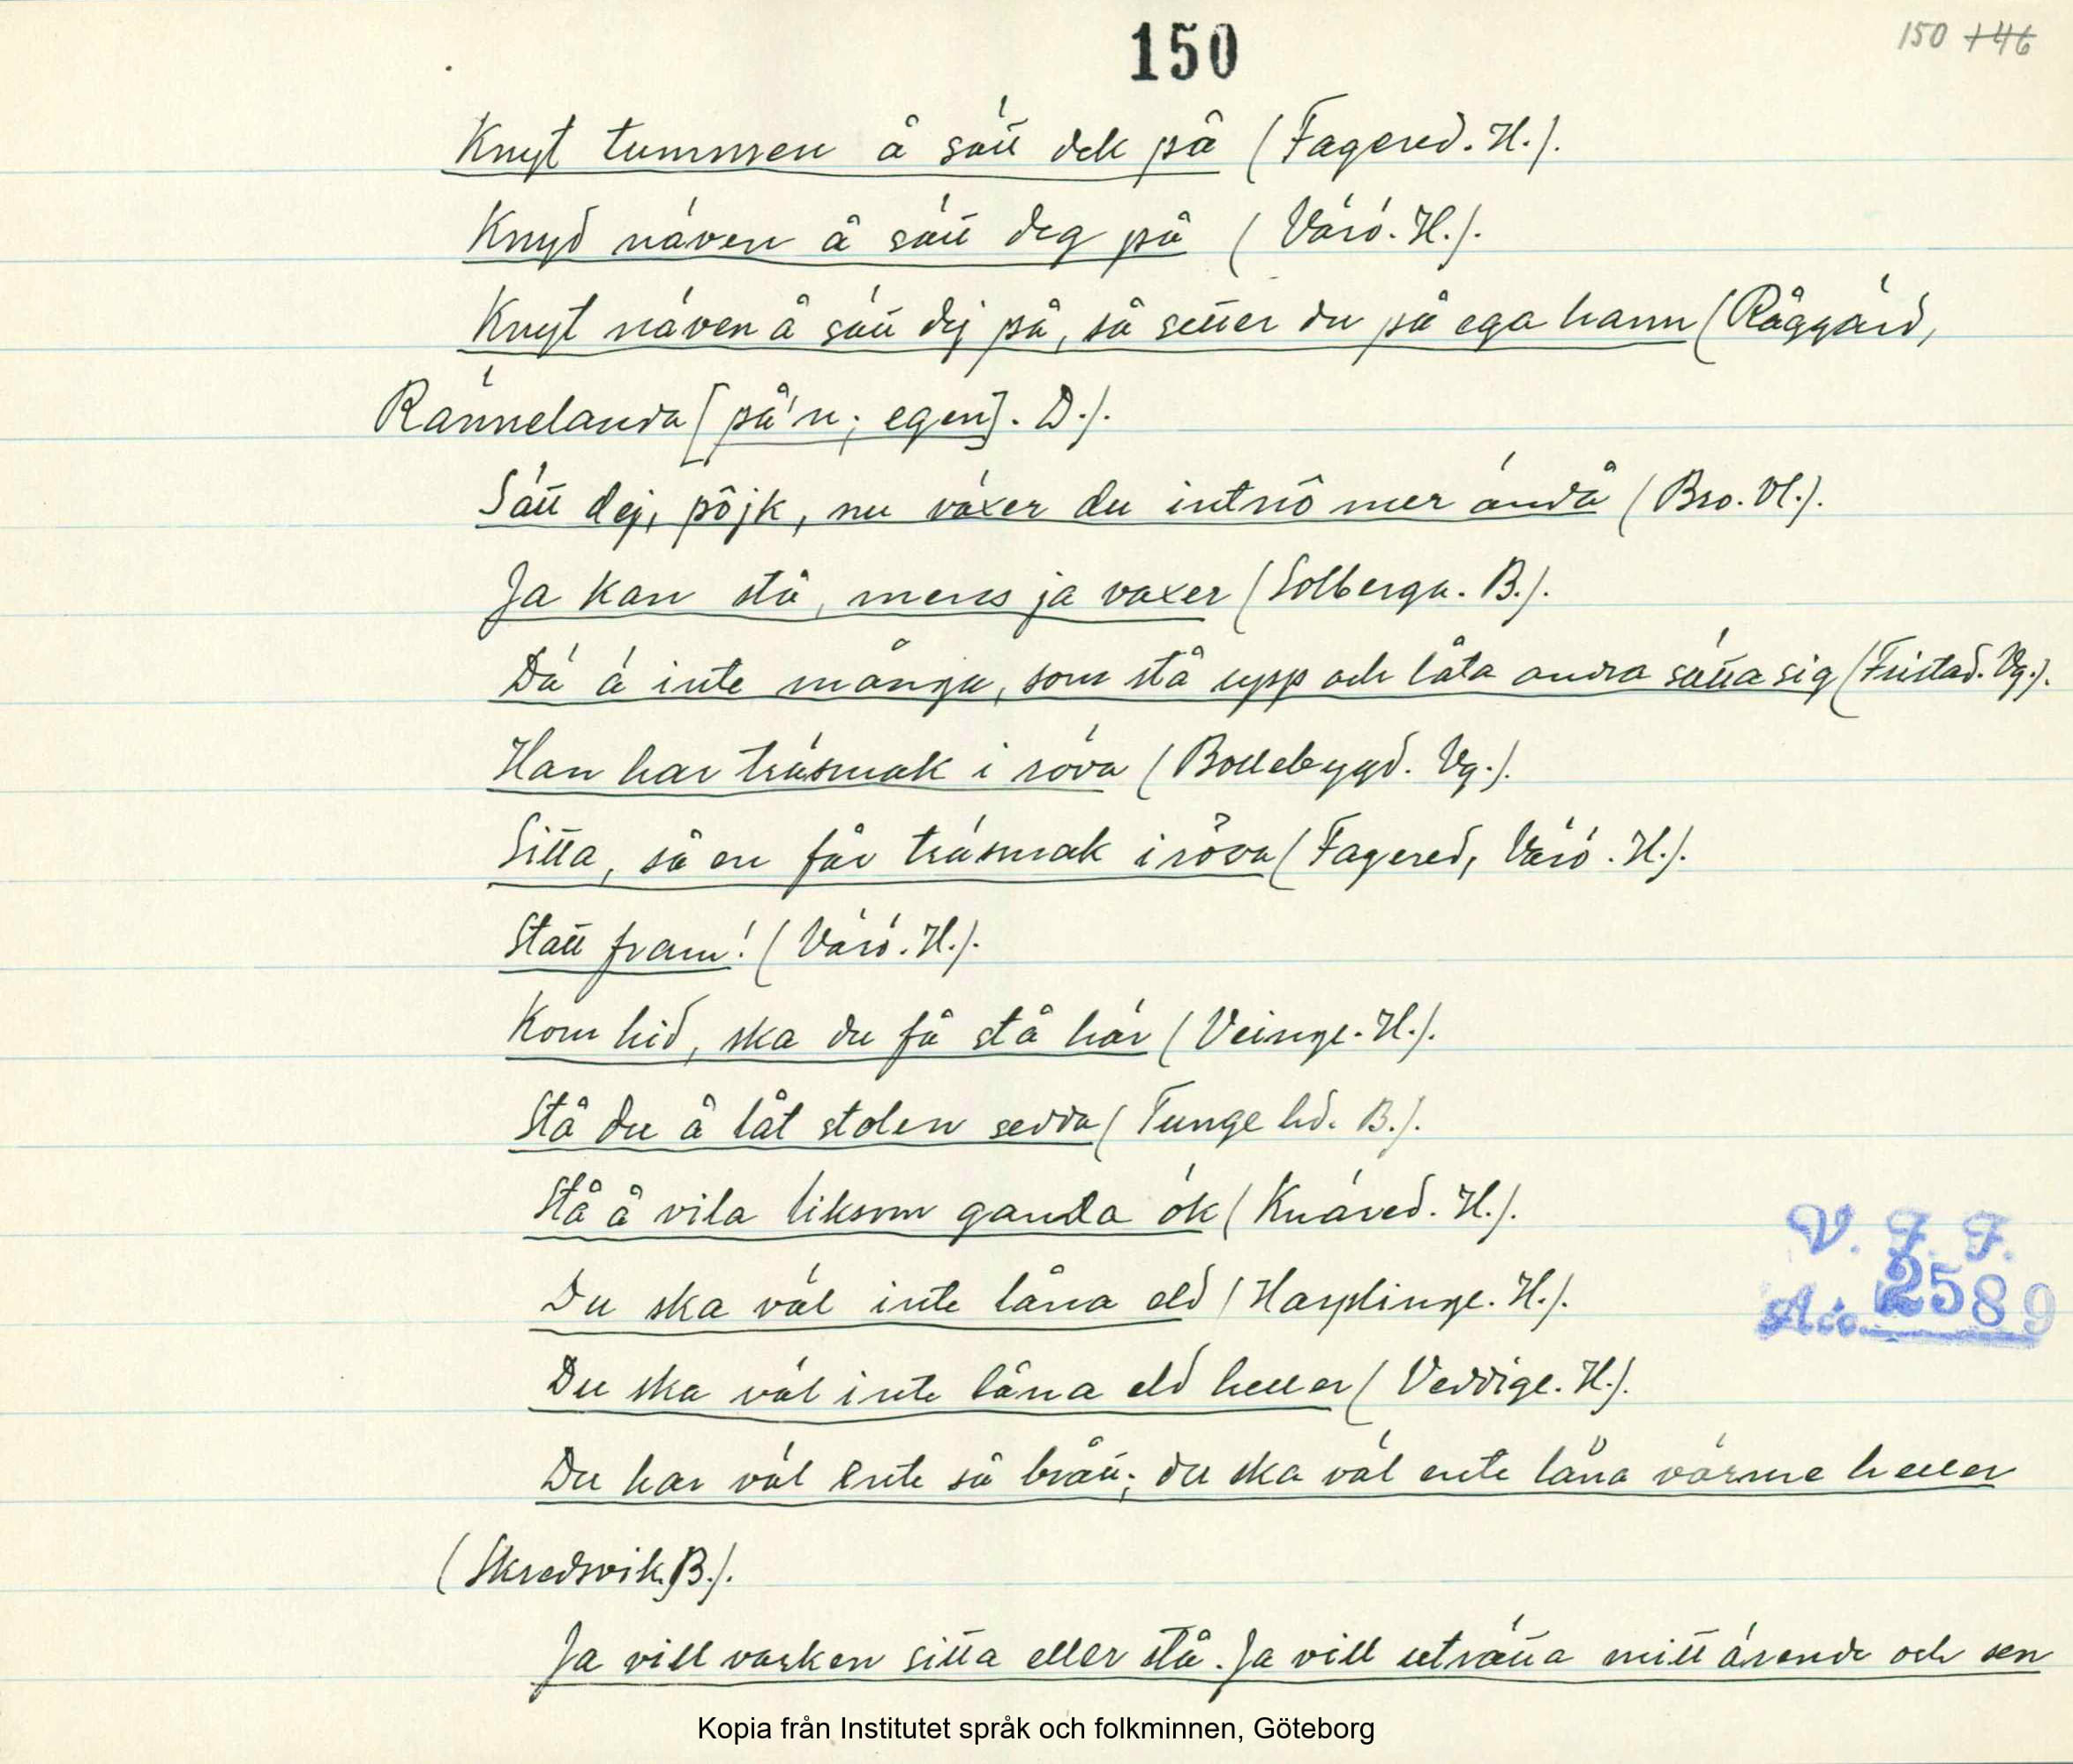 150
150 146
Knyt tummen å sätt dek på (Fagered. H.).
Knyd näven å sätt deg på (Värö. H.).
Knyt näven å sätt dej på, så setter du på ega hann (Råggärd,
Rännelanda [på'n; egen]. D.).
Sätt dej, pôjk, nu växer du intnô mer ändå (Bro. Vl.).
Ja kan stå, mens ja vaxer (Solberga. B.).
Dä ä inte många, som stå upp och låta andra sätta sig (Fristad. Vg.).
Han har träsmak i röva (Bollebygd. Vg.).
Sitta, så en får träsmak i röva (Fagered, Värö. H.).
Statt fram! (Värö. H.).
Kom hid, ska du få stå här (Veinge. H.).
Stå du å låt stolen sedda (Tunge hd. B.).
Stå å vila liksom gamla ök (Knäred. H.).
Du ska väl inte låna eld (Harplinge. H.).
Du ska väl inte låna eld heller (Veddige. H.).
Du har väl ente så brått; du ska väl ente låna värme heller
(Skredsvik. B.).
Ja vill varken sitta eller stå. Ja vill uträtta mitt ärende och sen
V. F. F.
Acc. 2589
Kopia från Institutet språk och folkminnen, Göteborg